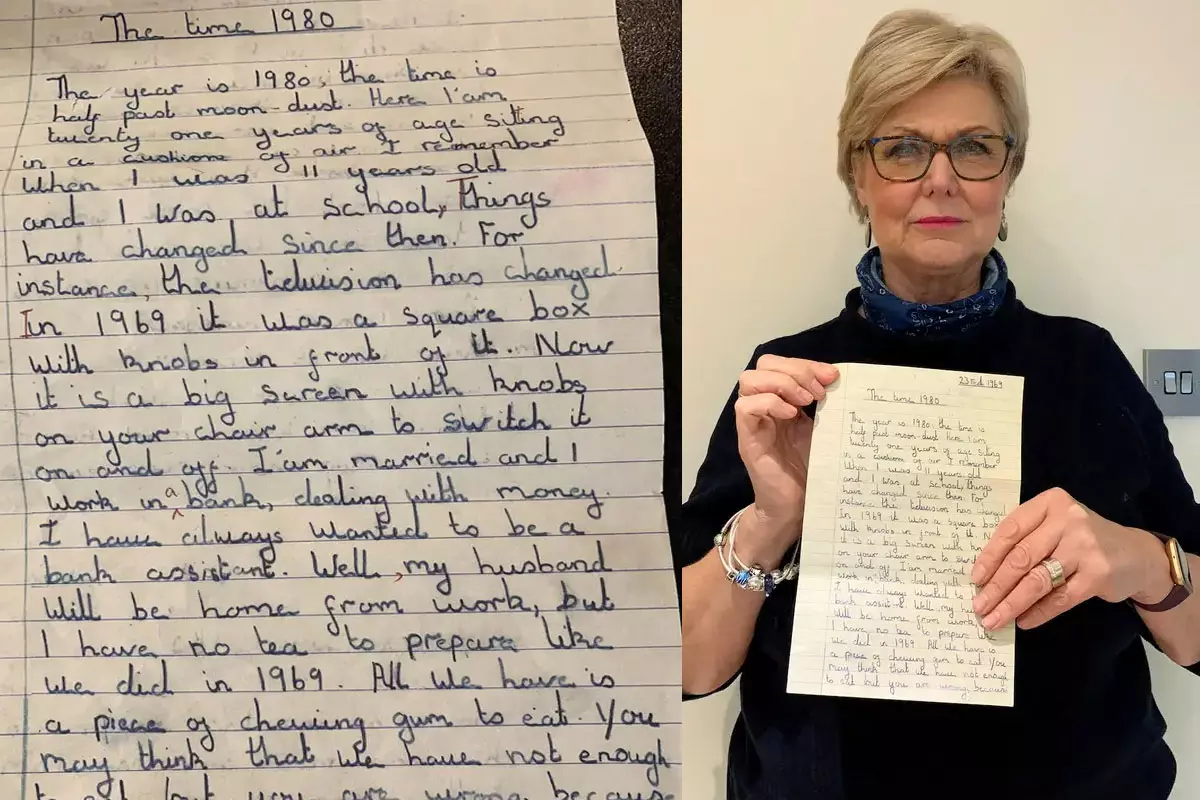 The time 1980
The year is 1980, the time is
half past moon-dust. Here I'am
twenty one years of age sitting
in a cushione of air I remember
When I was 11 years old
and I was at school, Things
have changed since then. For
instance, the television has changed.
In 1969 it was a square box
with knobs in front of it. Now
it is a big sureen with knobs
on your chair arm to switch it
on and off. I'am married and I
work in a bank, dealing with money.
I have always wanted to be a
bank assistant. Well, my husband
will be home from work, but
I have no tea to prepare like
we did in 1969. All we have is
a piece of chewing gum to eat. You
may think that we have not enough
to eat but you are wrong because
23 Feb 1969
The time 1980
The year is 1980, the time is
half past moon-dust. Here I'am
twenty one years of age sitting
in a cushione of air I remember
When I was 11 years old
and I was at school, Things
have changed since then. For
instance, the television has changed
In 1969 it was a square box
with knobs in front of it. N
it is a big sureen with kno
on your chair arm to switc
on and off. I'am married and
work in a bank, dealing with
I have always wanted to be
bank assist Well, my hus
will be home from work,
I have no tea to prepare like
we did in 1969. All we have is
a piece of chewing gum to eat. You
may think that we have not enough
to eat but you are wrong because